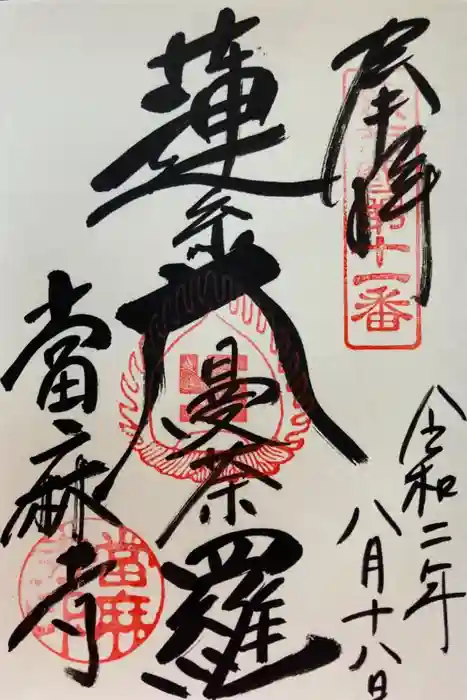 奉拝
第十一番
令和二年
八月十八日
蓮糸大曼荼羅
當麻寺